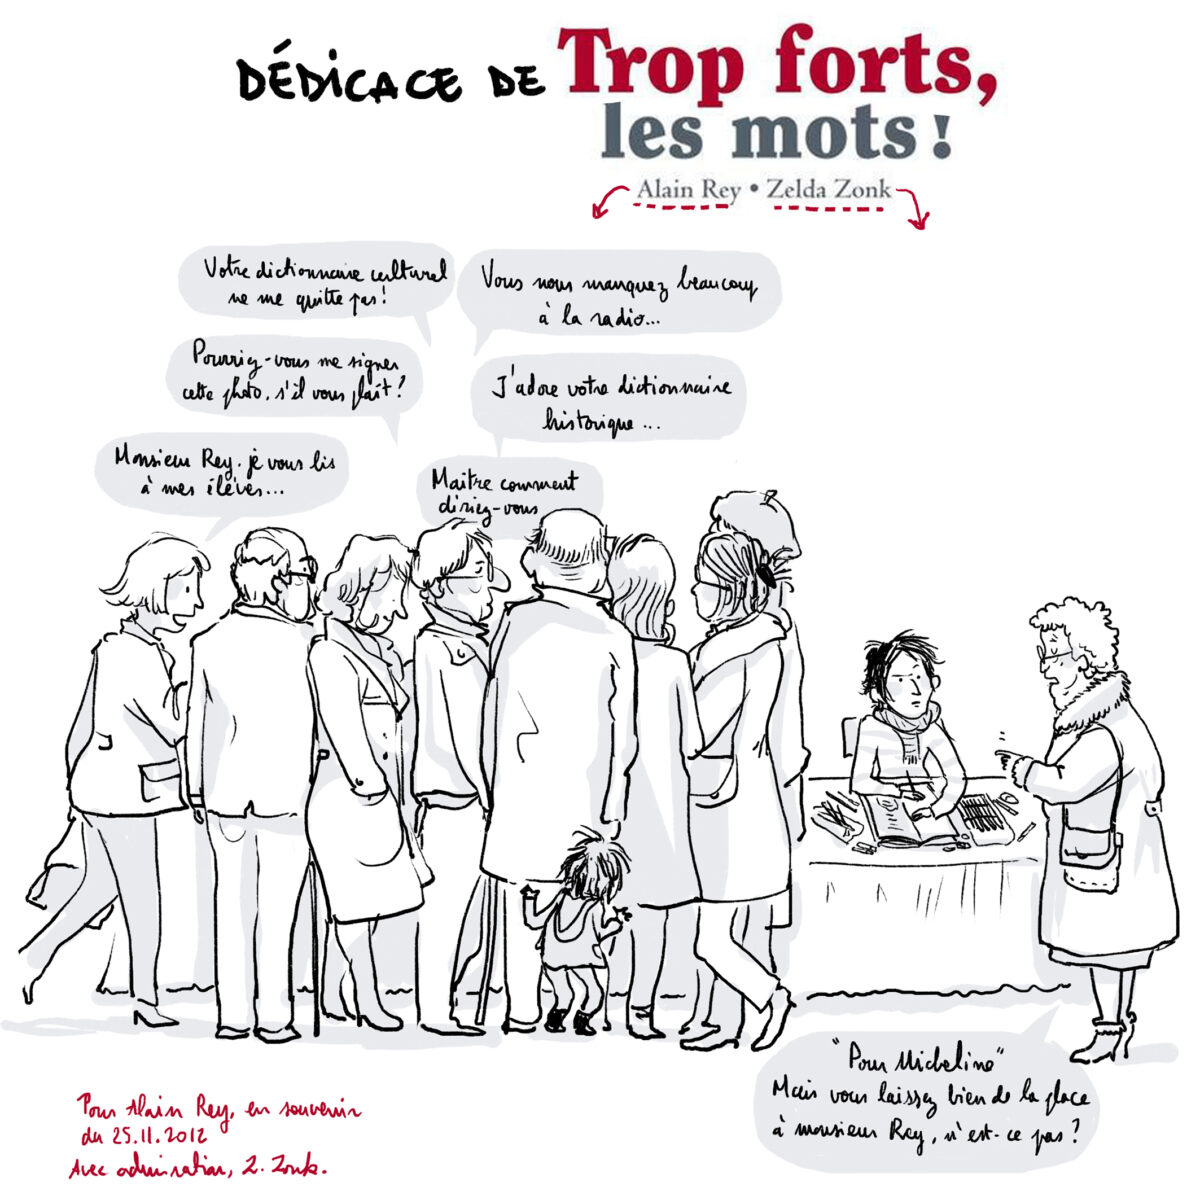 DÉDICACE DE Trop forts,
les mots !
Alain Rey • Zelda Zonk
Votre dictionnaire culturel
ne me quitte pas !
Vous nous manquez beaucoup
à la radio...
Pourriez-vous me signer
cette photo, s'il vous plaît ?
J'adore votre dictionnaire
historique ...
Monsieur Rey, je vous lis
à mes élèves...
Maître comment
diriez-vous
"Pour Micheline"
Mais vous laissez bien de la place
à monsieur Rey, n'est-ce pas ?
Pour Alain Rey, en souvenir
du 25.11.2012
Avec admiration, Z. Zonk.